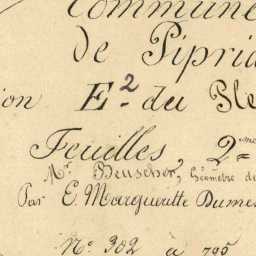 Commune
de Pipria
ion E.2 du Ple
Feuilles, 2
Mr. Beuscher, Géomètre de
Par E. Margueritte Dumes
N.o 302 à 795